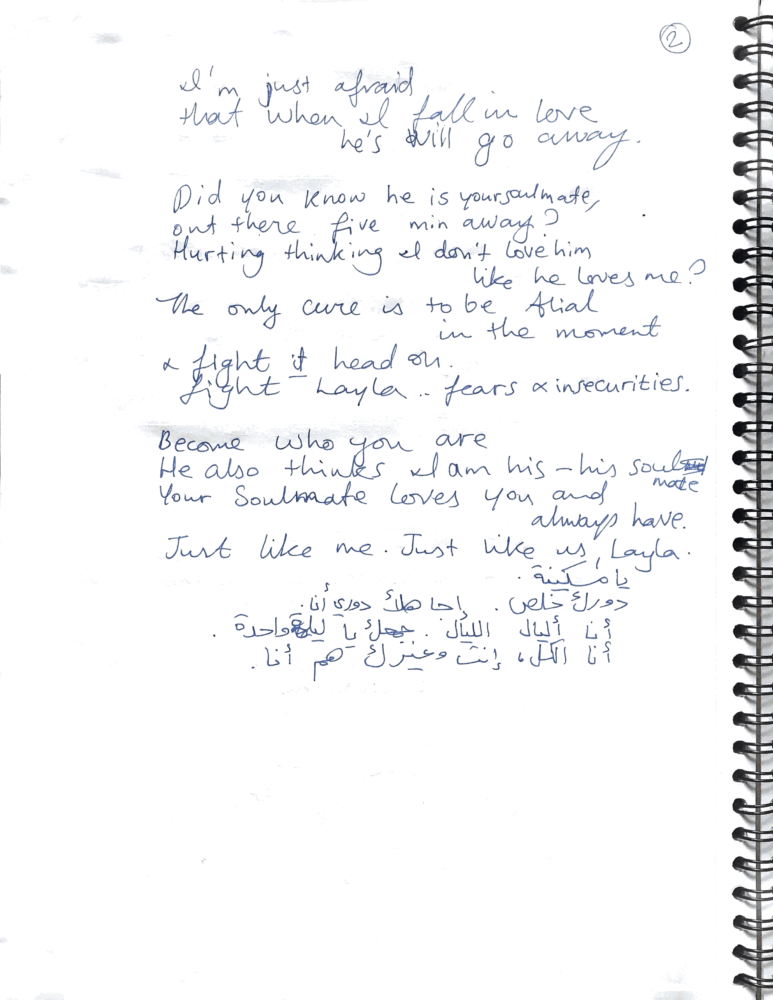 2
I'm just afraid
that when I fall in love
he's will go away.
Did you know he is your soulmate,
out there five min away?
Hurting thinking I don't love him
like he loves me?
The only cure is to be Alial
in the moment
& fight it head on.
fight Layla .. fears & insecurities.
Become who you are
He also thinks I am his - his soul
mate
Your Soulmate loves you and
always have.
Just like me. Just like us, Layla.
يا مسكينة.
دورك خلص. إجا هلأ دوري أنا.
أنا أليال الليال. يا ليلة واحدة.
أنا الكل، إنت وغيرك هم أنا.